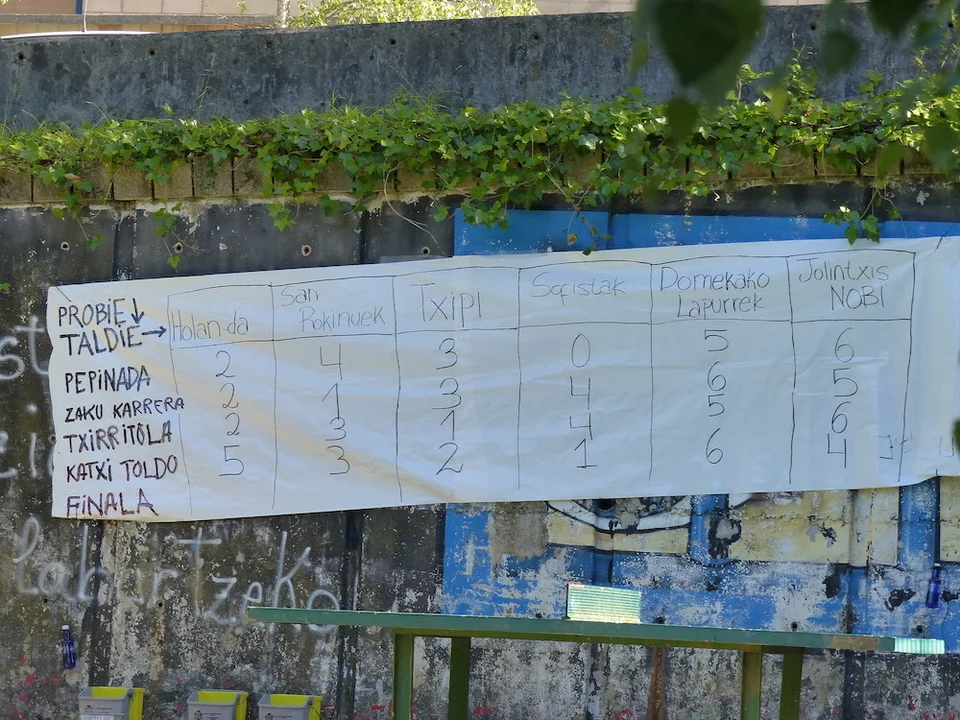 PROBIE↓ San Txipi Sofistak Domekako Jolintxis
TALDIE→ Holanda Pokinuek Lapurrek NOBI
PEPINADA 2 4 3 0 5 6
ZAKU KARRERA 2 1 3 4 6 5
TXIRRITOLA 2 3 1 4 5 6
KATXI TOLDO 5 3 2 1 6 4
FINALA
laburtzeko